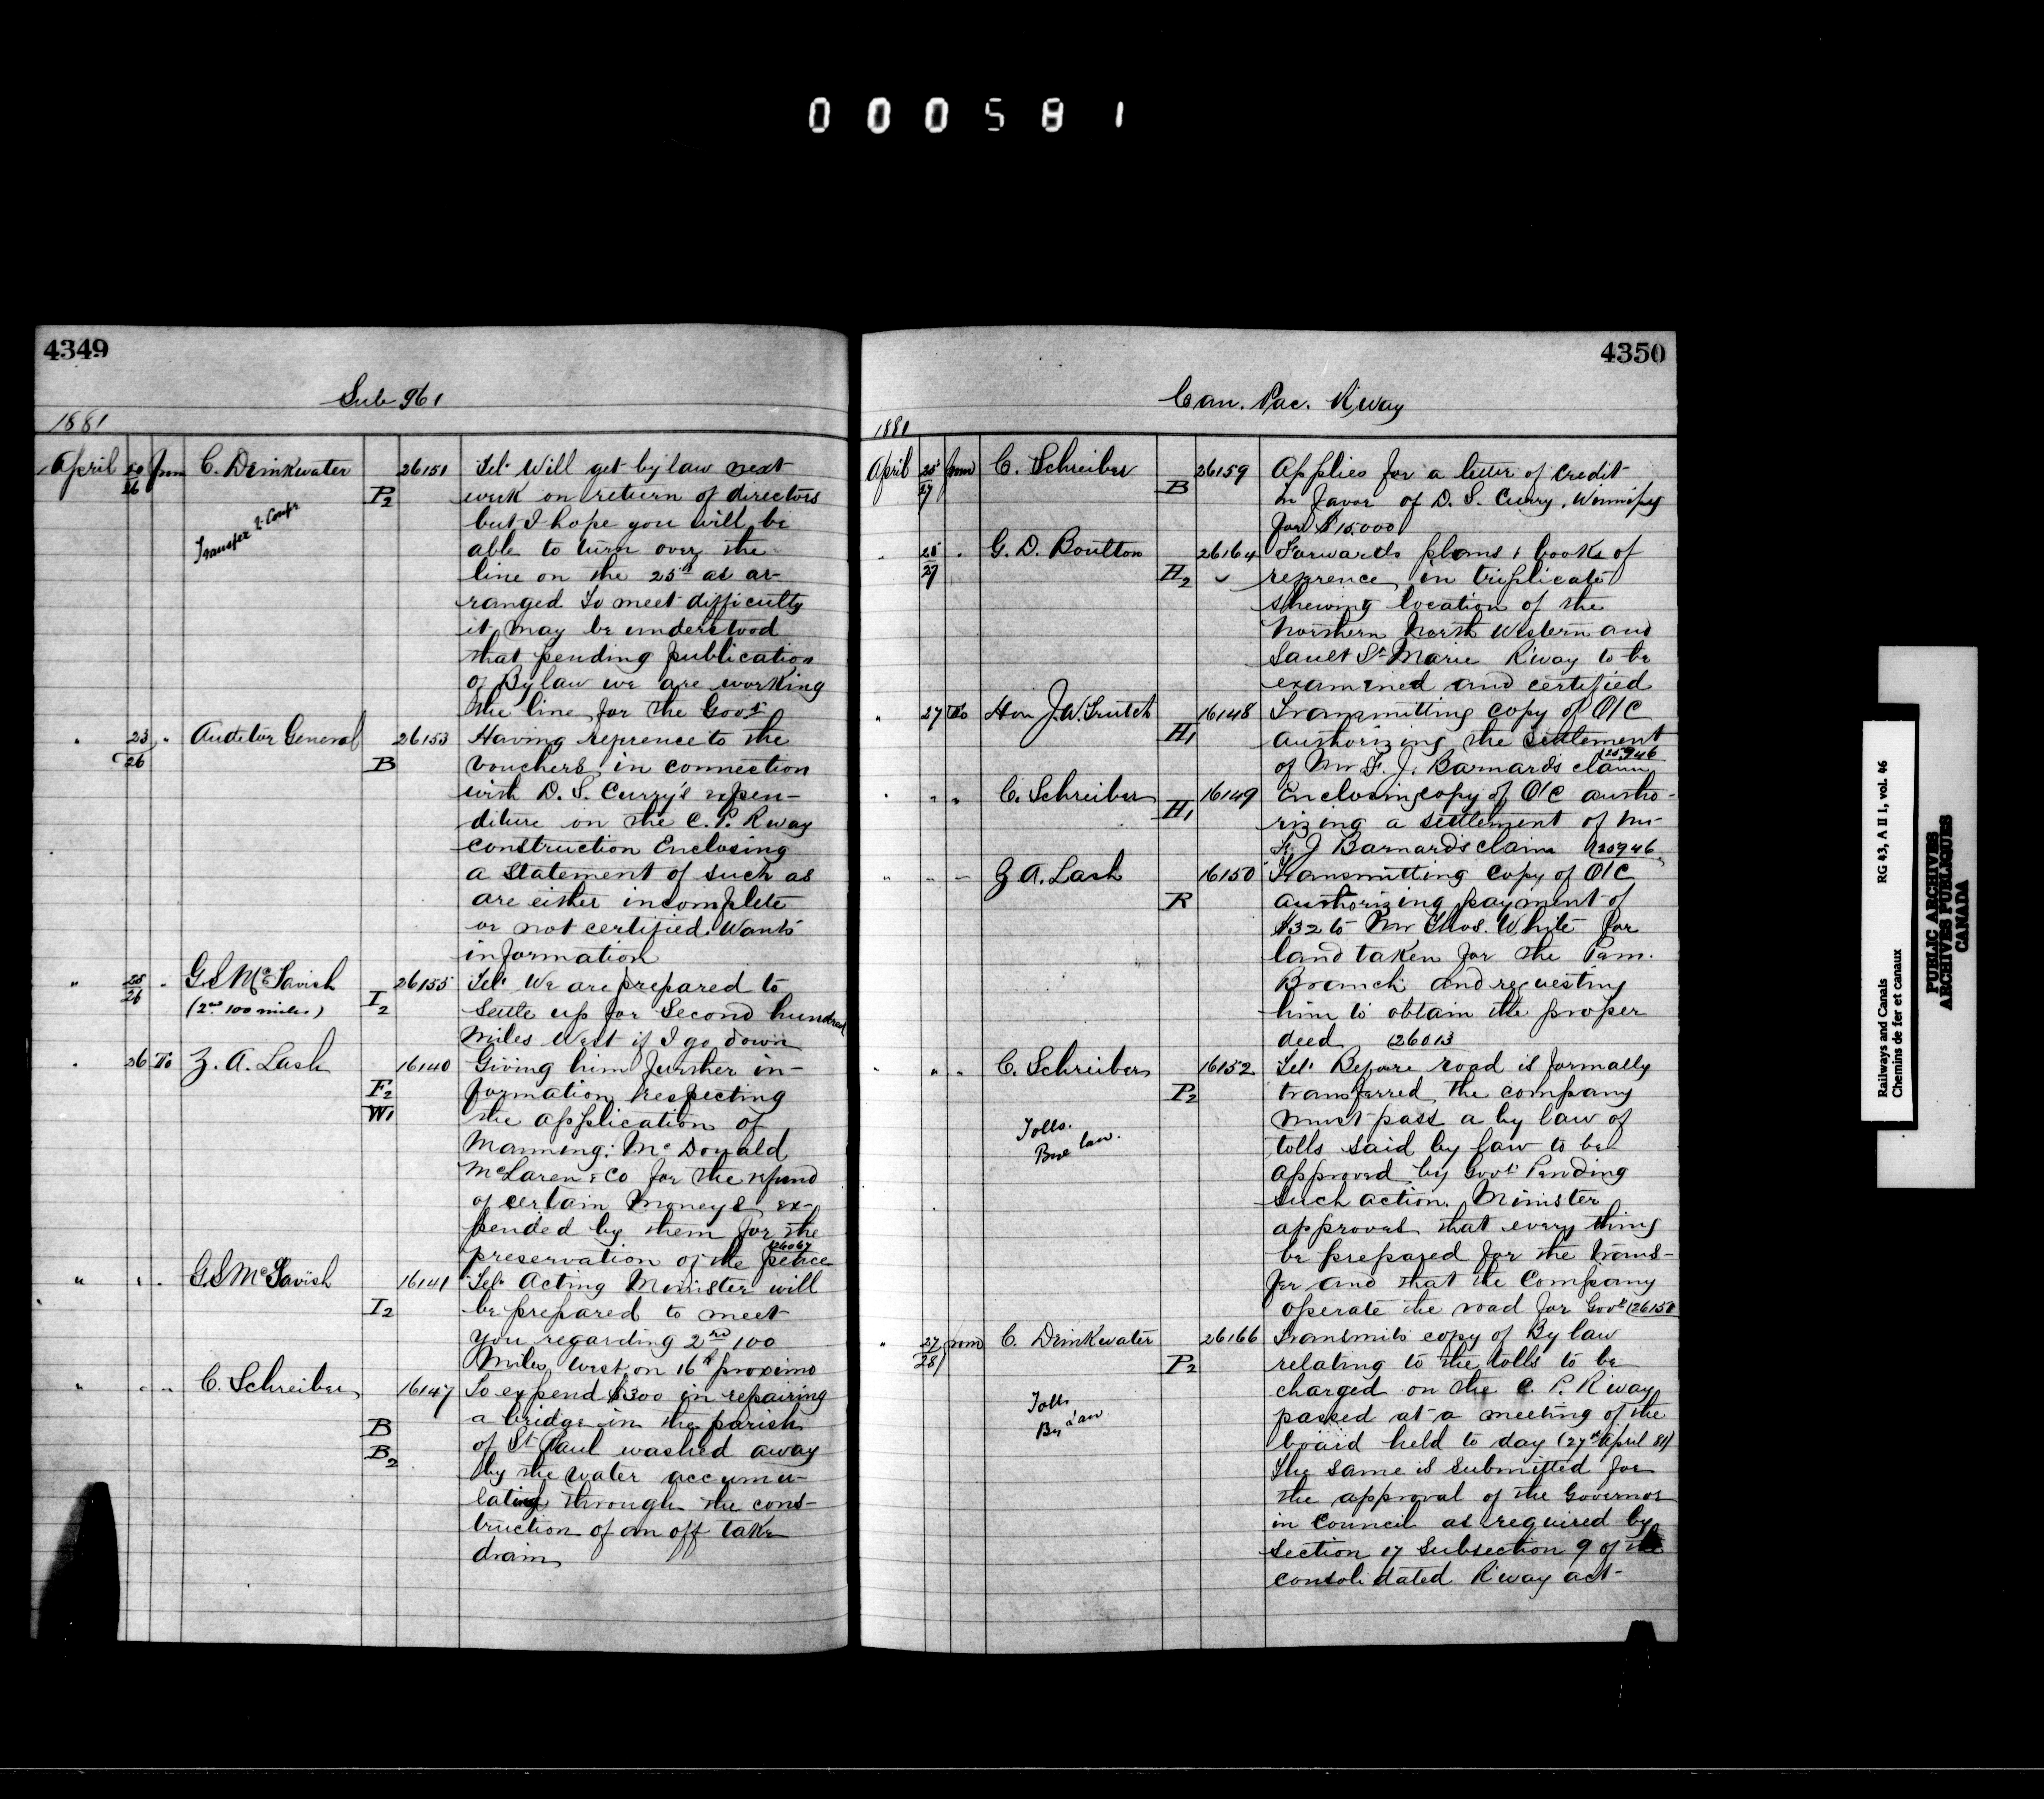 000581
4349
Sub 961
1881
April 20/26 from C. Drinkwater 26151 Tel. Will get by law next
P2 week on return of directors
Transfer to Comp'y but I hope you will be
able to turn over the
line on the 25th as ar-
ranged To meet difficulty
it may be understood
that pending publication
of By law we are working
the line for the Govt
" 23/26 " Auditor General 26153 Having reference to the
B vouchers in connection
with D. S. Curry's expen-
diture on the C. P. Rway
construction Enclosing
a statement of such as
are either incomplete
or not certified. Wants
information
" 25/26 " G S McTavish 26155 Tel. We are prepared to
(2nd 100 miles) I2 settle up for Second hundred
miles West if I go down
" 26 To Z. A. Lash 16140 Giving him further in-
F2 formation respecting
W1 the application of
Manning, McDonald
McLaren & Co for the refund
of certain moneys ex-
pended by them for the
preservation of the peace (26067
" " " G S McTavish 16141 Tel. Acting Minister will
I2 be prepared to meet
you regarding 2nd 100
Miles West on 16th proximo
" " " C. Schreiber 16147 To expend $300 in repairing
B a bridge in the parish
B2 of St Paul washed away
by the water accumu-
lating through the cons-
truction of an off take
drain
4350
Can. Pac. R'way
1881
April 25/27 from C. Schreiber 26159 Applies for a letter of credit
B in favor of D. S. Curry, Winnipeg
for $15.000
" 25/27 " G. D. Boulton 26164 Forwards plans & books of
H2 refrence, in triplicate
shewing location of the
Northern North Western and
Sault St Marie R'way to be
examined and certified
" 27 To Hon J. W. Trutch 16148 Transmitting copy of O/C
H1 authorizing the settlement
of Mr F. J. Barnard's claim (25946
" " " C. Schreiber 16149 Enclosing copy of O/C autho-
H1 rizing a settlement of Mr
F. J Barnard's claim (25946
" " " Z A. Lash 16150 Transmitting copy of O/C
R authorizing payment of
$32 to Mr Thos. White for
land taken for the Pem.
Branch and requesting
him to obtain the proper
deed (26013
" " " C. Schreiber 16152 Tel. Before road is formally
P2 transferred, the company
Tolls. must pass a by law of
Bye law. tolls said by law to be
approved by Govt Pending
such action, Minister
approves that every thing
be prepared for the trans-
fer and that the Company
operate the road for Govt (26151
" 27/28 from C. Drinkwater 26166 Transmits copy of By law
P2 relating to the tolls to be
Tolls charged on the C. P. R'way
By Law passed at a meeting of the
board held to day (27th April 81)
The same is submitted for
the approval of the Governor
in Council as required by
Section 17 Subsection 9 of the
consolidated R'way act-
Railways and Canals RG 43, A II 1, vol. 46
Chemins de fer et canaux
PUBLIC ARCHIVES
ARCHIVES PUBLIQUES
CANADA